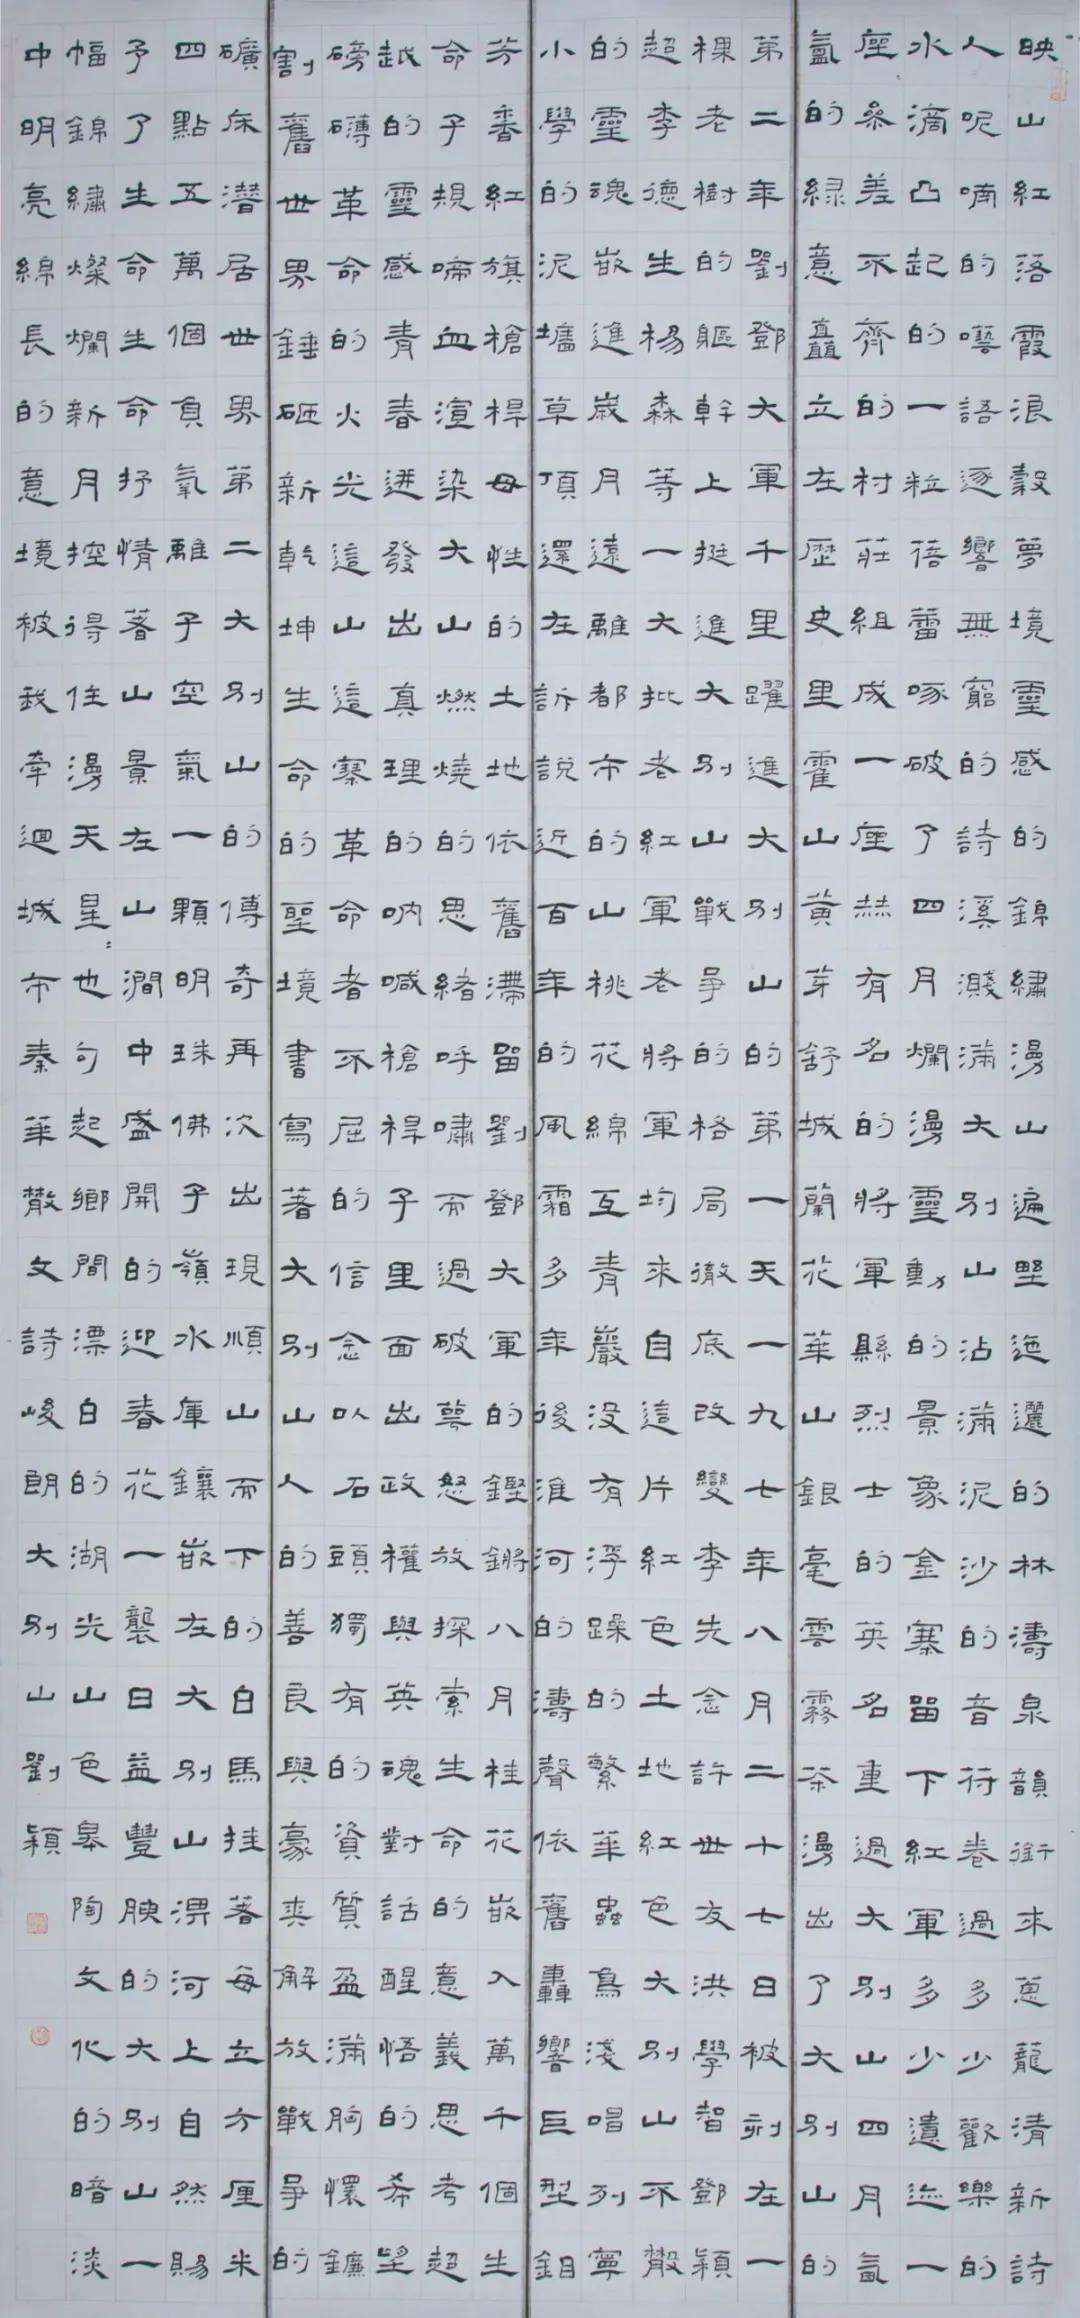 映山紅落霞浪縠夢境靈感的錦繡漫山遍野迤邐的林濤泉韻銜來蔥蘢清新詩
人呢喃的囈語逐響無窮的詩溪濺滿大別山沾滿泥沙的音符卷過多少歡樂的
水滴凸起的一粒蓓蕾啄破了四月爛漫靈動的景象金寨留下紅軍多少遺迹一
座參差不齊的村莊組成一座赫有名的將軍縣烈士的英名重過大別山四月氤
氳的綠意矗立在歷史里霍山黃芽舒城蘭花華山銀毫雲霧茶漫出了大別山的
第二年劉鄧大軍千里躍進大別山的第一天一九七年八月二十七日被刻在一
棵老樹的軀幹上挺進大別山戰爭的格局徹底改變李先念許世友洪學智鄧穎
超李德生楊森等一大批老紅軍老將軍均來自這片紅色土地紅色大別山不散
的靈魂嵌進歲月遠離都市的山桃花綿亙青巖沒有浮躁的繁華蟲鳥淺唱列寧
小學的泥墻草頂還在訴說近百年的風霜多年後淮河的濤聲依舊轟響巨型鉬
芬香紅旗槍桿母性的土地依舊滯留劉鄧大軍的鏗鏘八月桂花嵌入萬千個生
命子規啼血渲染大山燃燒的思緒呼嘯而過破萼怒放探索生命的意義思考超
越的靈感青春迸發出真理的吶喊槍桿子里面出政權與英魂對話醒悟的希望
磅礴革命的火光這山這寨革命者不屈的信念以石頭獨有的資質盈滿胸懷鐮
割舊世界錘砸新乾坤生命的聖境書寫著大別山人的善良與豪爽解放戰爭的
礦床潛居世界第二大別山的傳奇再次出現順山而下的白馬挂著每立方厘米
四點五萬個負氧離子空氣一顆明珠佛子嶺水庫鑲嵌在大別山淠河上自然賜
予了生命生命抒情著山景在山澗中盛開的迎春花一襲日益豐腴的大別山一
幅錦繡燦爛新月控得住漫天星〻也句起鄉間漂白的湖光山色皋陶文化的暗淡
中明亮綿長的意境被我牽迴城市秦華散文詩峻朗大別山劉穎